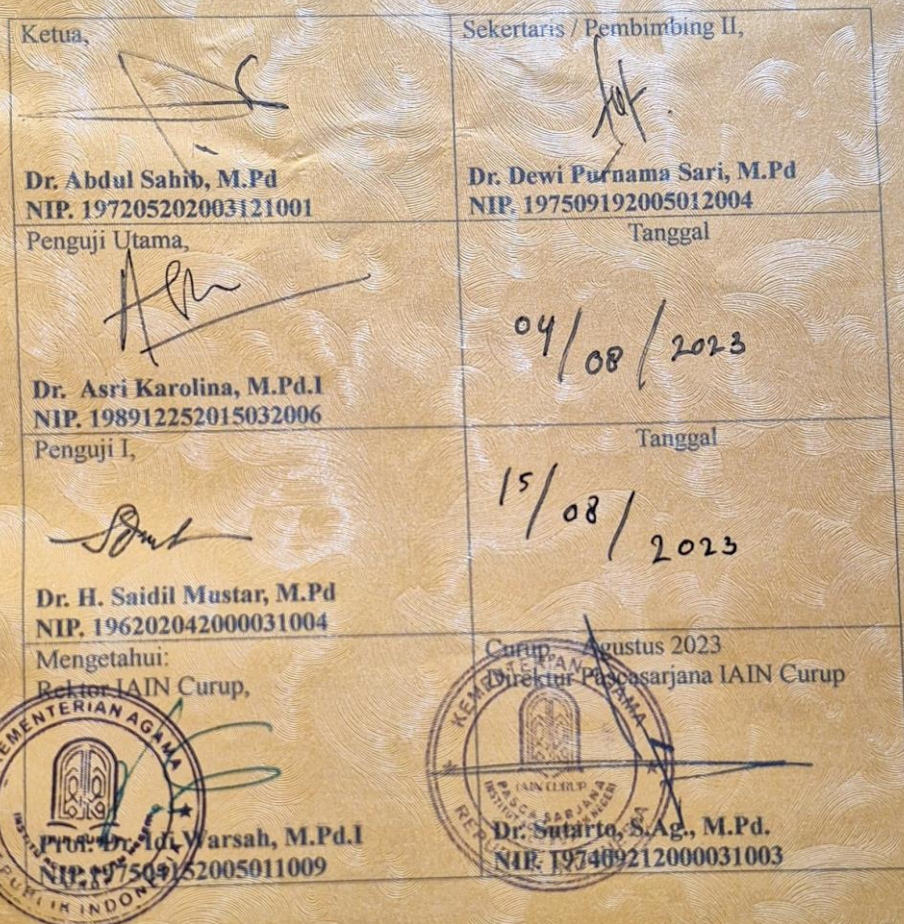 Ketua,
Dr. Abdul Sahib, M.Pd
NIP. 197205202003121001
Sekertaris / Pembimbing II,
Dr. Dewi Purnama Sari, M.Pd
NIP. 197509192005012004
Penguji Utama,
Dr. Asri Karolina, M.Pd.I
NIP. 198912252015032006
Tanggal
04/08/2023
Penguji I,
Dr. H. Saidil Mustar, M.Pd
NIP. 196202042000031004
Tanggal
15/08/
2023
Mengetahui:
Rektor IAIN Curup,
KEMENTERIAN AGAMA
Prof. Dr. Idi Warsah, M.Pd.I
NIP. 197504152005011009
REPUBLIK INDONESIA
Curup, Agustus 2023
Direktur Pascasarjana IAIN Curup
KEMENTERIAN AGAMA
IAIN CURUP
PASCASARJANA
Dr. Sutarto, S.Ag., M.Pd.
NIP. 197409212000031003